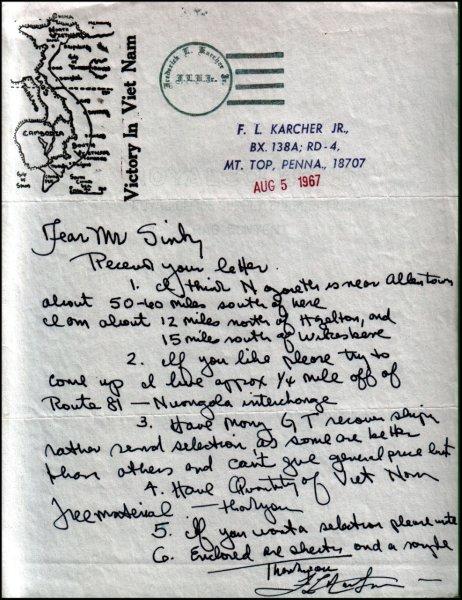 CHINA
CAMBODIA
Victory In Viet Nam
Frederick L. Karcher Jr.
F.L.K.Jr.
F. L. KARCHER JR.,
BX. 138A; RD-4,
MT. TOP, PENNA., 18707
AUG 5 1967
Dear Mr
Received your letter.
1. I think Nazareth is near Allentown
about 50-60 miles south of here
I am about 12 miles north of Hazelton, and
15 miles south of Wilkesbarre
2. If you like please try to
come up I live approx 1/4 mile off of
Route 81 — Nuangola interchange
3. Have many G T recover ships
rather send selection as some are better
than others and can't give general price list
4. Have Quantity of Viet Nam
free material — thankyou
5. If you want a selection please write
6. Enclosed are sheets and a sample
Thankyou